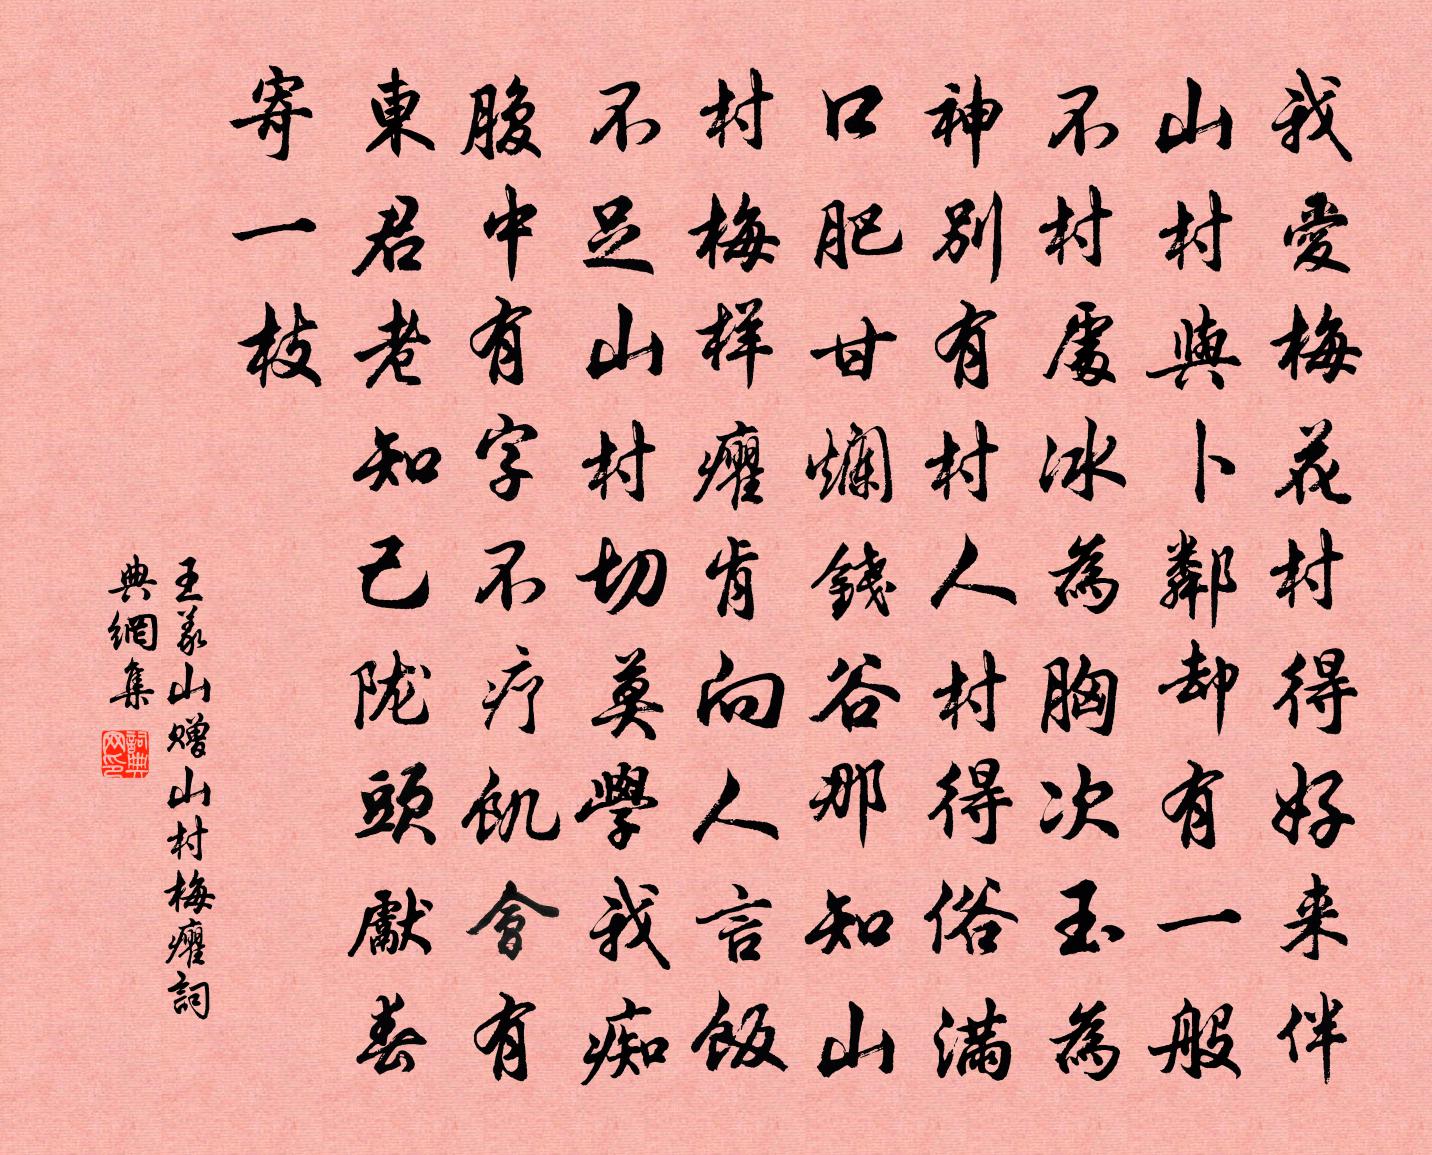 我愛梅花村得好来伴
山村與卜鄰却有一般
不村處冰為胸次玉為
神別有村人村得俗滿
口肥甘爛錢谷那知山
村梅样癯肯向人言飯
不足山村切莫學我痴
腹中有字不疗飢會有
東君老知己陇頭獻春
寄一枝
王義山赠山村梅癯詞
典網集
詞典网印